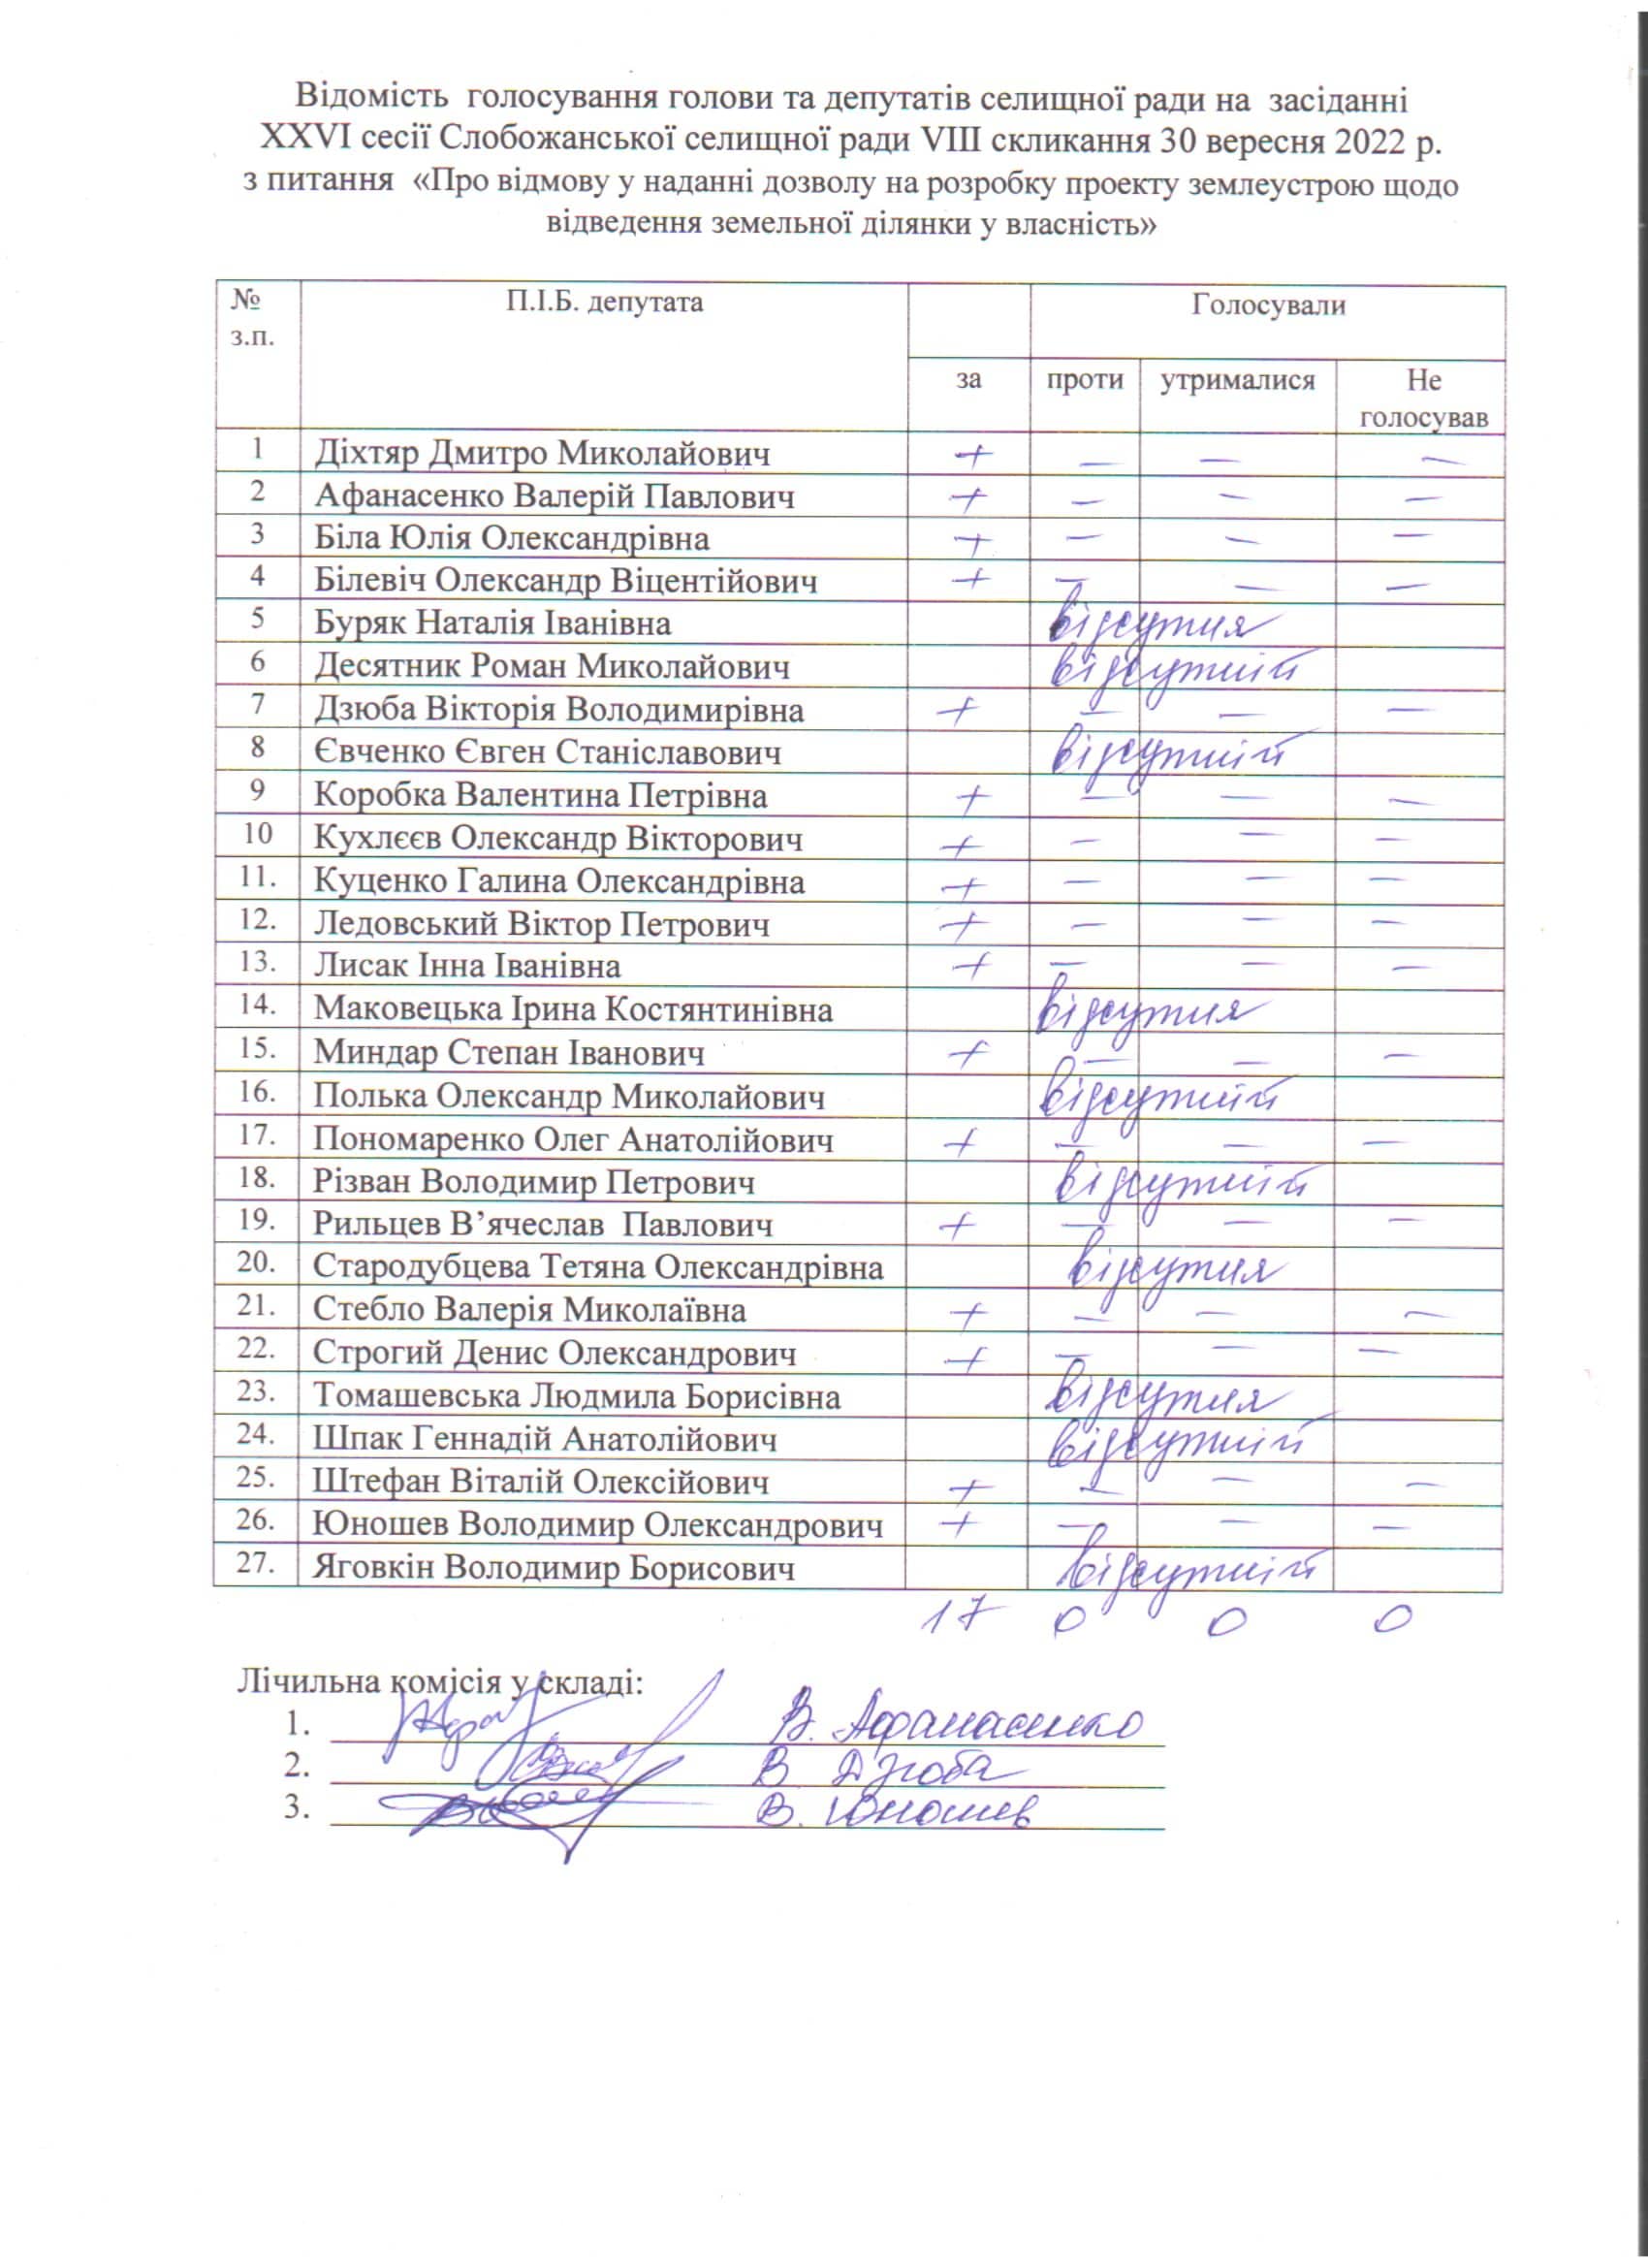 Відомість голосування голови та депутатів селищної ради на засіданні
XXVI сесії Слобожанської селищної ради VIII скликання 30 вересня 2022 р.
з питання «Про відмову у наданні дозволу на розробку проекту землеустрою щодо
відведення земельної ділянки у власність»
№ з.п. П.І.Б. депутата Голосували
за проти утрималися Не голосував
1 Діхтяр Дмитро Миколайович + – – –
2 Афанасенко Валерій Павлович + – – –
3 Біла Юлія Олександрівна + – – –
4 Білевіч Олександр Віцентійович + – – –
5 Буряк Наталія Іванівна відсутня
6 Десятник Роман Миколайович відсутній
7 Дзюба Вікторія Володимирівна + – – –
8 Євченко Євген Станіславович відсутній
9 Коробка Валентина Петрівна + – – –
10 Кухлєєв Олександр Вікторович + – – –
11. Куценко Галина Олександрівна + – – –
12. Ледовський Віктор Петрович + – – –
13. Лисак Інна Іванівна + – – –
14. Маковецька Ірина Костянтинівна відсутня
15. Миндар Степан Іванович + – – –
16. Полька Олександр Миколайович відсутній
17. Пономаренко Олег Анатолійович + – – –
18. Різван Володимир Петрович відсутній
19. Рильцев В’ячеслав Павлович + – – –
20. Стародубцева Тетяна Олександрівна відсутня
21. Стебло Валерія Миколаївна + – – –
22. Строгий Денис Олександрович + – – –
23. Томашевська Людмила Борисівна відсутня
24. Шпак Геннадій Анатолійович відсутній
25. Штефан Віталій Олексійович + – – –
26. Юношев Володимир Олександрович + – – –
27. Яговкін Володимир Борисович відсутній
17 0 0 0
Лічильна комісія у складі:
1. В. Афанасенко
2. В Дзюба
3. В. Юношев